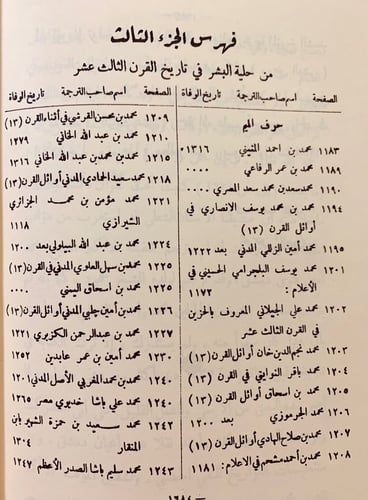 فهرس الجزء الثالث
من حلية البشر في تاريخ القرن الثالث عشر
الصفحة اسم صاحب الترجمة تاريخ الوفاة
حرف الميم
١١٨٣ محمد بن احمد المنيني ١٣١٦
١١٨٩ محمد بن عمر الرافعي ....
١١٩٠ محمد سعد بن محمد سعد المصري ....
١١٩٤ محمد بن محمد يوسف الانصاري في
أوائل القرن (١٣)
١١٩٥ محمد أمين الزللي المدني بعد ١٢٢٢
١٢٠١ محمد يوسف البلجرامي الحسيني في
الأعلام : ١١٧٢
١٢٠٢ محمد علي الجيلاني المعروف بالحزين
في القرن الثالث عشر
١٢٠٣ محمد نجم الدين خان أوائل القرن (١٣)
١٢٠٤ محمد باقر النوايتي في القرن (١٣)
١٢٠٥ محمد بن اسحاق أوائل القرن (١٣)
١٢٠٦ محمد الجرموزي بعد ١٢٠٠
١٢٠٧ محمد بن صلاح الهادي أوائل القرن (١٣)
١٢٠٨ محمد بن أحمد مشحم في الاعلام : ١١٨١
الصفحة اسم صاحب الترجمة تاريخ الوفاة
١٢٠٩ محمد بن محسن القرشي في أثناء القرن (١٣)
١٢١٠ محمد بن عبد الله الخاني ١٢٧٩
١٢١٥ محمد بن محمد بن عبد الله الخاني ١٣١٦
١٢١٨ محمد سعيد الحمادي المدني أوائل القرن (١٣)
١٢٢١ محمد مؤمن بن محمد الجزائري
الشيرازي ١١١٨
١٢٢٤ محمد بن عبد الله البيلوني بعد ١٢٠٠
١٢٢٥ محمد بن سهل العلوي المدني في القرن (١٣)
١٢٢٥ محمد بن اسحاق اليمني ....
١٢٢٦ محمد بن أمين چلبي المدني أوائل القرن (١٣)
١٢٢٧ محمد بن عبد الرحمن الكزبري ١٢٢١
١٢٣٠ محمد أمين بن عمر عابدين ١٢٥٢
١٢٤٠ محمد بن محمد المغربي الأصل المدني ١٢٠١
١٢٤٠ محمد علي باشا خديوي مصر ١٢٦٥
١٢٤٢ محمد سعيد بن حمزة الشهير بابن
المنقار ١٣٠٤
١٢٤٣ محمد سليم باشا الصدر الأعظم ١٢٤٧
— ١٦٨٤ —